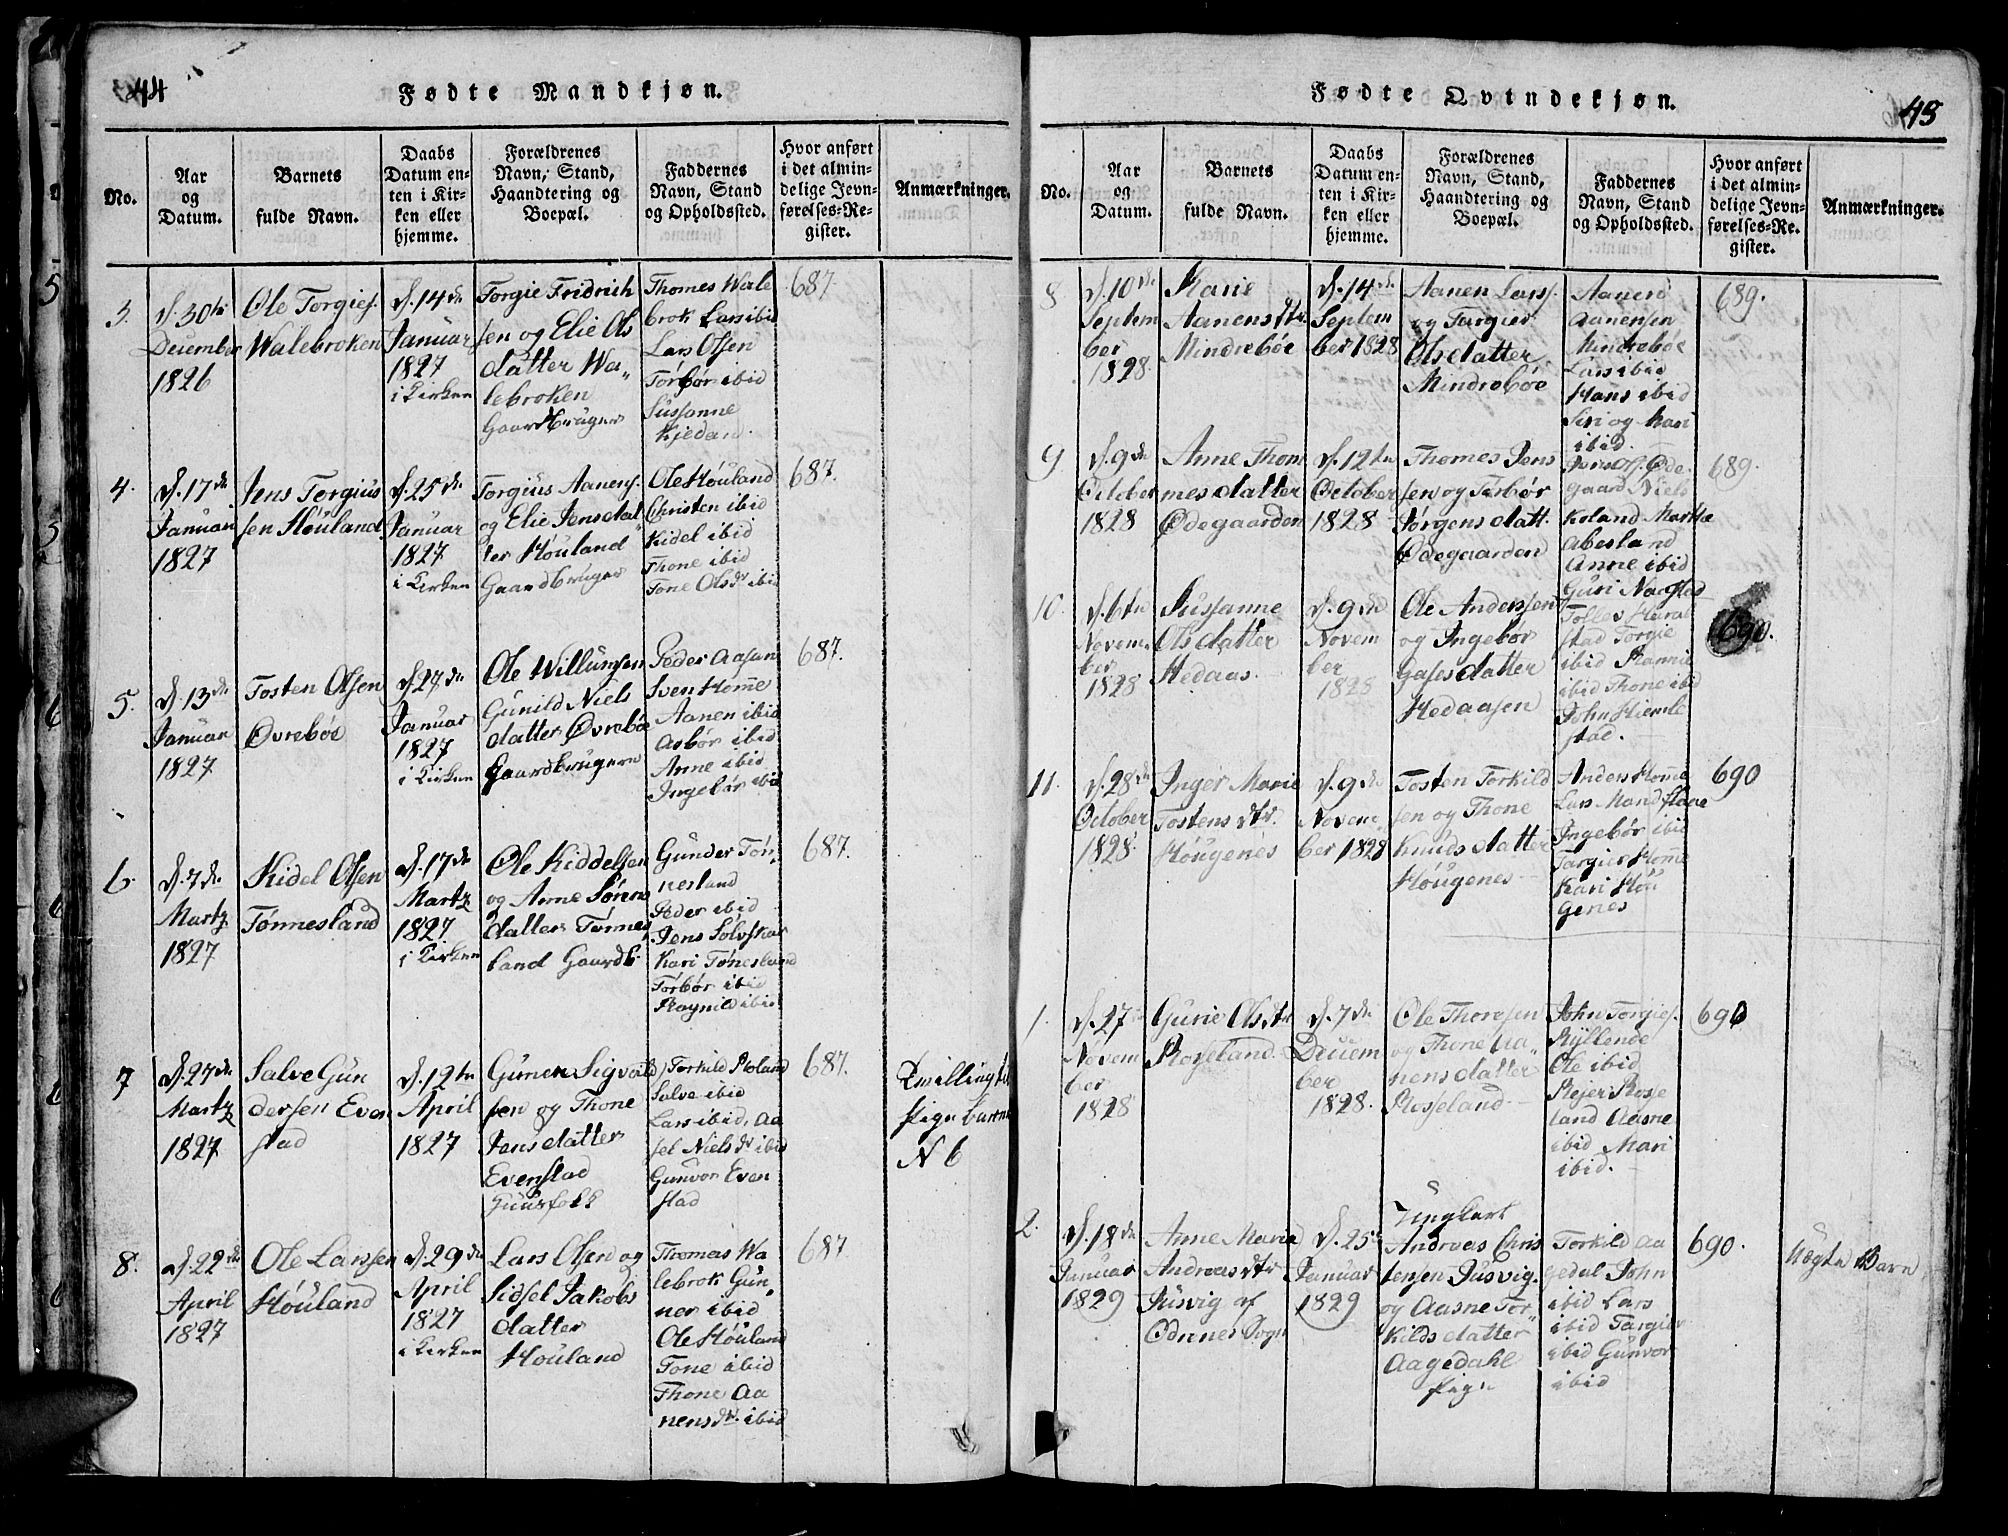 44
Fødte Mandkjøn.
No.
Aar
og
Datum.
Barnets
fulde Navn.
Daabs
Datum en-
ten i Kir-
ken eller
hjemme.
Forældrenes
Navn, Stand,
Haandtering og
Boepæl.
Faddernes
Navn, Stand
og Opholdssted.
Hvor anført
i det almin-
delige Jevn-
førelses-Re-
gister.
Anmærkninger.
3.
d. 30te
December
1826
Ole Torgies.
Walebroken
d. 14de
Januar
1827
i Kirken
Torgie Fridrich
sen og Elie Ols
datter Wa„
lebroken
Gaardbruger
Thomes Wale
brok Lars ibid
Lars Olsen
Torbør ibid
Sussanne
Kjedan.
687
4.
d. 17de
Januari
1827
Jens Torgius
sen Houland
d. 25de
Januar
1827
i Kirken
Torgius Aanens.
og Elie Jensdat
ter Houland
Gaardbruger
Ole Houland
Christen ibid
Kidel ibid
Thone ibid
Tone Olsdr ibid
687.
5.
d. 13de
Januar
1827
Tosten Olsen
Øvrebøe
d. 27de
Januar
1827
i Kirken
Ole Willumsen
Gunild Niels
datter Øvrebøe
Gaardbrugere
Peder Aasen
Sven Home
Aanen ibid
Asbør ibid
Anne ibid
Ingebør ibid
687.
6.
d. 7de
Martz
1827
Kidel Olsen
Tønnesland
d. 17de
Martz
1827
i Kirken
Ole Kiddelsen
og Anne Sønne
datter Tønnes
land Gaardb.
Gunder Tøn„
nesland
Peder ibid
Jens Sølvskar
Kari Tønesland
Torbør ibid
Ragnild ibid
687.
7
d. 27de
Martz
1827
Salve Gun
dersen Even
stad
d. 12te
April
1827
Gunen Sigvald
sen og Thone
Jensdatter
Evenstad
Huusfolk
Torkild Roland
Salve ibid
Lars ibid, Aa
sel Nielsdr ibid
Gunvor Even
stad
687.
Tvilling til
Pige barnet
N 6
8.
d. 22de
April
1827
Ole Larssen
Houland
d. 29de
April
1827
i Kirken
Lars Olsen og
Sidsel Jakobs
datter
Houland
Thomas Wa
lebrok Gun„
ner ibid
Ole Houland
Tone ibid
Thone Aa
nensdr. ibid
687
45
Fødte Qvindekjøn.
No.
Aar
og
Datum.
Barnets
fulde Navn.
Daabs
Datum en-
ten i Kir-
ken eller
hjemme.
Forældrenes
Navn, Stand,
Haandtering og
Boepæl.
Faddernes
Navn, Stand
og Opholdssted.
Hvor anført
i det almin-
delige Jevn-
førelses-Re-
gister.
Anmærkninger.
8
d. 10de
Septem
ber
1828.
Karie
Aanensdtr.
Mindrebøe
d. 14de
Septem
ber 1828
Aanen Larss.
og Targier
Olsdatter
Mindrebøe
Aanen
Aanensen
Mindrebøe
Lars ibid
Hans ibid
Siri og Kari
ibid.
689.
9
d. 9de
October
1828
Anne Thom
mesdatter
Ødegaarden
d. 12te
October
1828
Thomes Jens
sen og Torbør
Jørgensdatt.
Ødegaarden
Jens Ols. Øde-
gaard Niels
Koland Marthe
Abesland
Anne ibid
Guri Nagstad
689.
10.
d. 6te
Novem
ber
1828
Sussanne
Olsdatter
Hedaas
d. 9de
Novem
ber
1828
Ole Anderssen
og Ingebør
Gasesdatter
Hedaasen
Tolles Haral
stad Torgie
ibid Rannie
ibid Thone ibid
John Hiemle
stad.
690.
11.
d. 28de
October
1828.
Inger Marie
Tostensdtr.
Hougenes
d. 9de
Novem
ber 1828
Tosten Torkild
sen og Thone
Knudsdatter
Hougenes
Anders Home
Lars Mandflaae
Ingebør ibid
Targier Home
Kari Hou
genes
690
1.
d. 27
Novem
ber
1828
Gurie Olsdtr
Roseland.
d. 7de
Decem
ber
1828.
Ole Thoresen
og Thone Aa„
nensdatter
Rosseland
John Torgies.
Kyllende
Ole ibid
Rejer Rosse
land Aasne
ibid Mari
ibid.
690
2.
d. 18de
Januar
1829
Anne Marie
Andreasdtr
Jusvig af
Oddnes Sogn
d. 25
Januar
1829
Ungkarl
Andreas Chris
tensen Jusvig.
og Aasne Tor„
kildsdatter
Aagedahl
Pige
Torkild Aa
gedal John
ibid Lars
ibid Targier
ibid Gunvor
ibid
690.
Uægte Barn